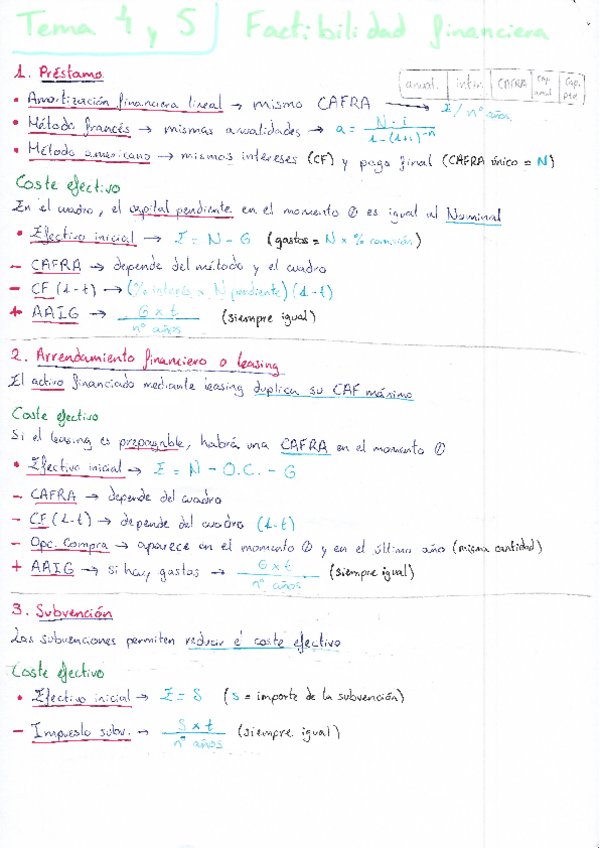 Tema 4 y 5 Factibilidad financiera
1. Préstamo
anual. inter. CAFRA Cap. amort Cap. pte
• Amortización financiera lineal → mismo CAFRA → E / nº años
• Método francés → mismas anualidades → a = N · i / 1 - (1+i)^-n
• Método americano → mismos intereses (CF) y pago final (CAFRA único = N)
Coste efectivo
En el cuadro, el capital pendiente en el momento 0 es igual al Nominal
• Efectivo inicial → E = N - G (gastos = N x % comisión)
- CAFRA → depende del método y el cuadro
- CF (1-t) → (% interés x N pendiente) (1-t)
+ AAIG → G x t / nº años (siempre igual)
2. Arrendamiento financiero o leasing
El activo financiado mediante leasing duplica su CAF máximo
Coste efectivo
Si el leasing es prepagable, habrá una CAFRA en el momento 0
• Efectivo inicial → E = N - O.C. - G
- CAFRA → depende del cuadro
- CF (1-t) → depende del cuadro (1-t)
- Opc. Compra → aparece en el momento 0 y en el último año (misma cantidad)
+ AAIG → si hay gastos → G x t / nº años (siempre igual)
3. Subvención
Las subvenciones permiten reducir el coste efectivo
Coste efectivo
• Efectivo inicial → E = S (S = importe de la subvención)
- Impuesto subv. → S x t / nº años (siempre igual)